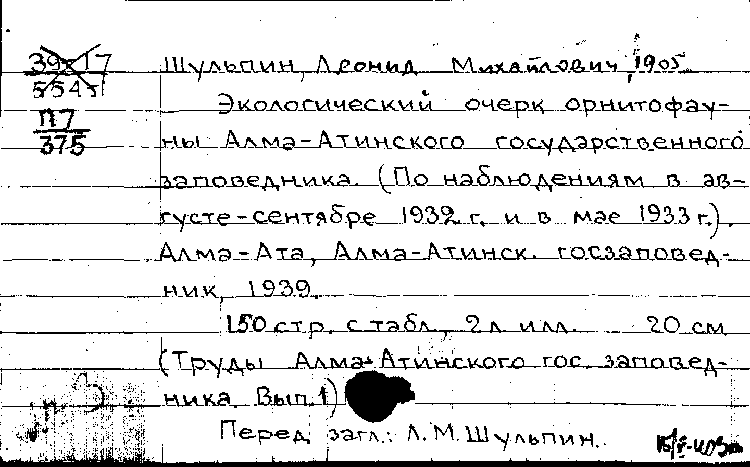 39-17
5545
Шульпин, Леонид Михайлович, 1905
П7
375
Экологический очерк орнитофау-
ны Алма-Атинского государственного
заповедника. (По наблюдениям в ав-
густе-сентябре 1932 г. и в мае 1933 г.).
Алма-Ата, Алма-Атинск. госзаповед-
ник, 1939.
150 стр. с табл., 2 л. илл. 20 см
(Труды Алма-Атинского гос. заповед-
ника. Вып. 1)
Перед загл.: Л. М. Шульпин.